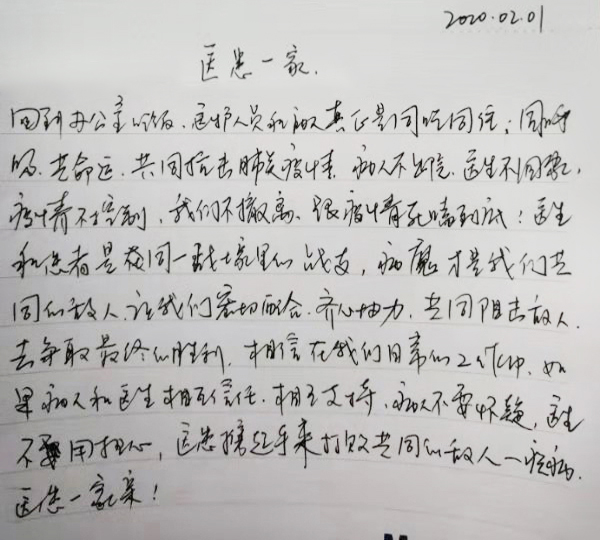 2020.02.01
医患一家.
回到办公室吃饭、医护人员和病人真正是同吃同住；同呼
吸、共命运、共同抗击肺炎疫情、病人不出院、医生不回家，
疫情不控制，我们不撤离、跟疫情死嗑到底！医生
和患者是在同一战壕里的战友，病魔才是我们共
同的敌人、让我们密切配合、齐心协力、共同阻击敌人、
去争取最终的胜利，相信在我们日常的工作中、如
果病人和医生相互信任、相互支持、病人不要怀疑，医生
不用担心，医患携起手来打败共同的敌人—疾病、
医患一家亲！